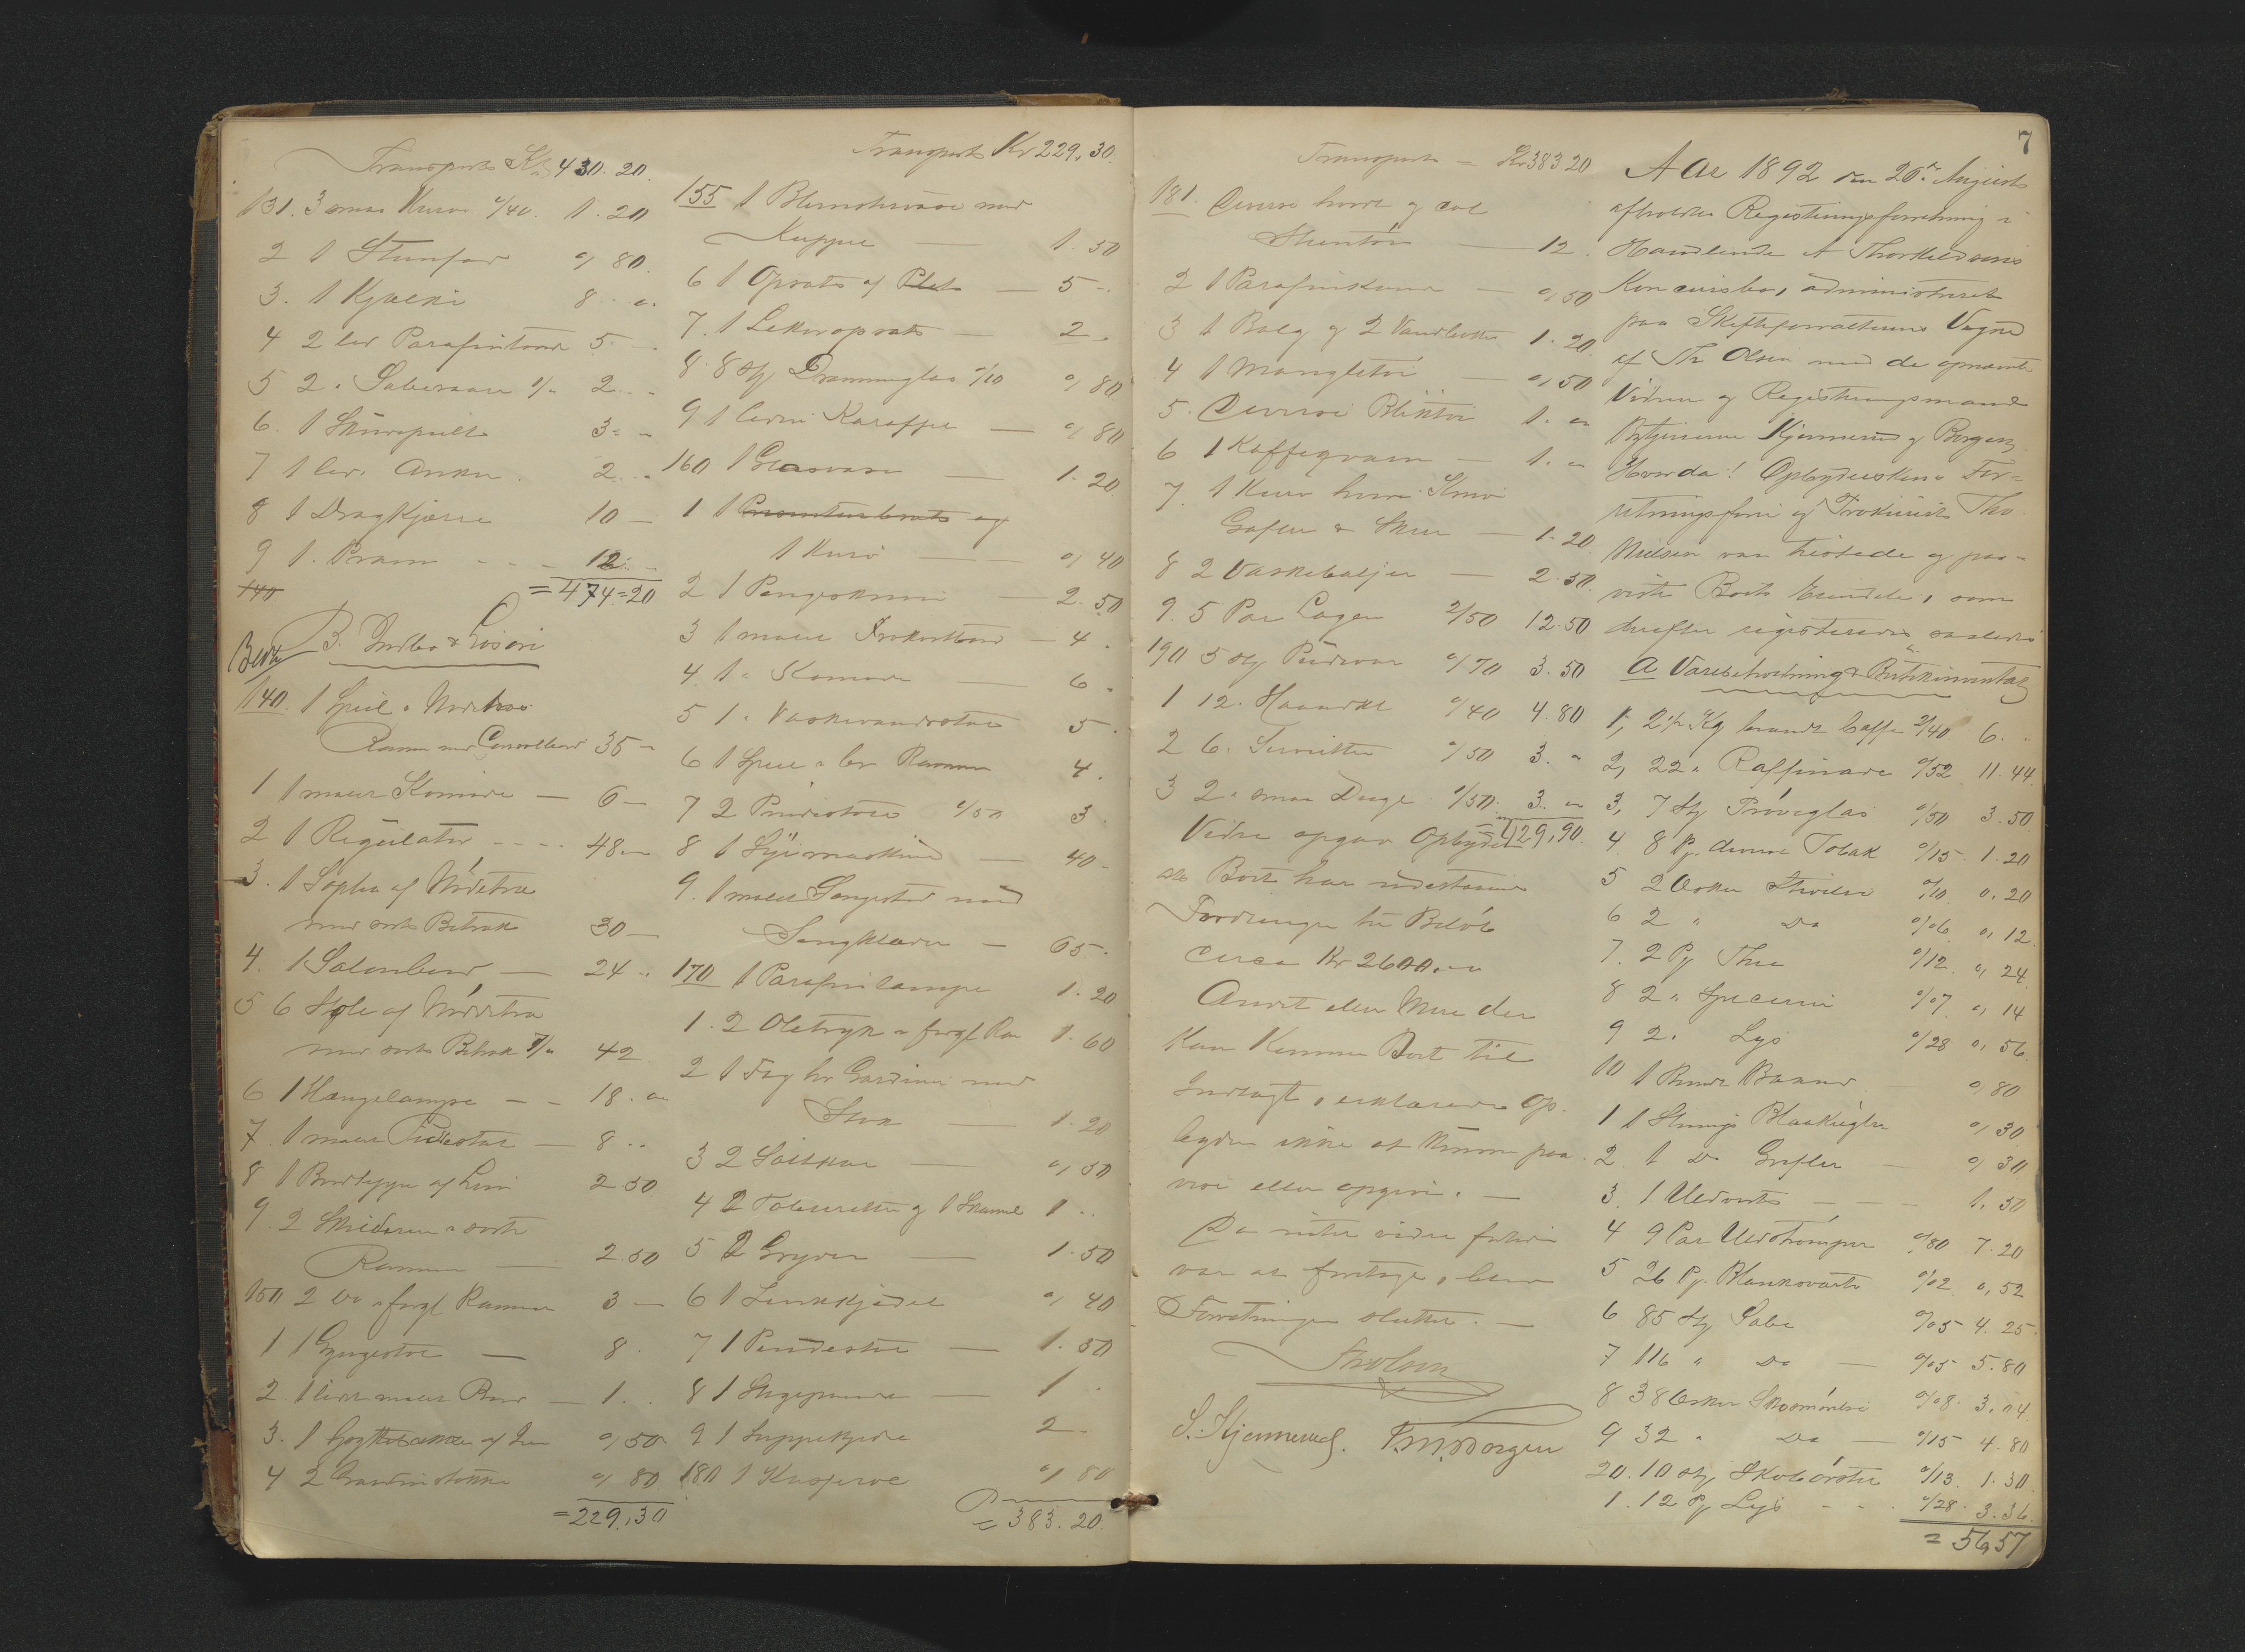 Transport Kr 430.20.
131. 3 smaa Kurve 0/40. 1.20
2 1 Stumfad 0,80.
3. 1 Kjælke 8 "
4 2 led Parafintønder 5. —
5 2 " 1/" 2. "
6. 1 Skrivepult 3. —
7 1 led. Anker. 2. "
8 1 Dragkjærre 10 —
9 1. Pram - - - 12. —
140. = 474=20
B. Indbo & Løsøre
140. 1 Speil i Nøddetræs
Ramme med Consolbord 35 —
1 1 malet Komode — 6 —
2 1 Regulator - - - - 48. —
3. 1 Sopha af Nødetræ
med sort Betræk 30 —
4. 1 Salonbord — 24 "
5 6 Stole af Nøddetræ
med sort Betræk 7/" 42
6 1 Hængelampe — - 18. "
7. 1 malet Pidestal — 8 "
8 1 Bordteppe af Lin 2 50
9. 2 Skilderier i sorte
Rammer — 2.50
150 2 Do i forgt Rammer 3 —
1 1 Gyngestol — 8.
2. 1 lidet malet Bord — 1. "
3. 1 af 0,50
4 2 Gardinstokke 0,80
= 229,30
Transport Kr 229,30.
155 1 Blomstervase med
Kuppel — 1.50
6 1 Opsats af Plet — 5 —
7. 1 Likøropsats — 2 —
8. 8 Stk Dramneglas 0/10 0,80
9 1 Karaffel — 0,80
160 1 Glasvase — 1.20
1 1 og
1 Kurv — 0,40
2 1 Pengeskrin — 2.50
3 1 malet Frokostbord — 4.
4. 1 " Komode — 6 "
5 1 " Vaskevandsstol 5.
6 1 Speil i br Ramme 4.
7 2 Pindestole 1/50 3.
8 1 Symaskine — 40 —
9. 1 malet Sengested med
Sengklæder — 65 —
170 1 Parafinlampe 1.20
1. 2 Oletryk i forgt Ram 1.60
2 1 Fag hv Gardiner med
Stok — 1.20
3 2 Saltkar — 0,50
4 2 og 1 Skammel 1 "
5 2 Gryder — 1.50
6 1 0,40
7 1 Pindestol — 1.50
8 1 Stegepande — 1.
9 1 2 —
180 1 Kasserol 0,80
= 383.20.
Transport — Kr 383 20
181. Diverse hvidt og
Stentøi — 12.
2 1 Parafinkande — 0,50
3 1 Balg og 2 Vandbøtter 1.20
4 1 Mangletøi — 0,50
5. Diverse Bliktøi 1. "
6 1 Kaffeqværn — 1. "
7. 1 Kurv hvori Knive
Gafler & Skeer — 1.20
8 2 Vaskebaljer — 2.50
9. 5 Par Lagen 2/50 12.50
190 5 Stk Pudevar 0/70 3.50
1 12. Haandkl 0/40 4.80
2 6. Servietter 0/50 3. "
3 2 " smaa Duge 1/50. 3. "
= 129,90.
Videre opgav Opbyderen
at Boet har udestaaende
Fordringer til Beløb
circa Kr 2600. —
Andet eller Mere der
kan komme Boet til
Indtægt, erklærede Op-
byderen ikke at kunne paa-
vise eller opgive. —
Da intet videre
var at foretage, blev
Forretningen sluttet. —
Th Olsen
S. Kjennerud. Borgen
7
Aar 1892 den 26de August
afholdtes Registreringsforretning i
Handlende A Thorkildsens
Konkursbo, administreret
paa Skifteforvalterens Vegne
af Th Olsen med de opnævnte
Vidner og Registreringsmænd
Kjennerud og Borgen
Hvorda! Opbyderskens For-
retningsfører og Prokurist Tho.
Nielsen var tilstede og paa-
viste Boets Eiendele, som
derefter registreredes saaledes
A Varebeholdning & Butikinventar
1, 2 1/2 Kg brændt Caffe 2/40 6. "
2, 22 " Raffinade 0/52 11.44
3, 7 Stk Prøveglas 0/50 3.50
4. 8 Pk. diverse Tobak 0/15 1.20
5 2 Æsker Stivelse 0/10 0,20
6 2 " Do 0/06 0,12.
7. 2 Pk Thee 0/12 0,24
8 2 " Specerier 0/07 0,14
9 2. Lys 0/28 0,56
10 1 Bundt Baand 0,80
1 1 Blaakugler 0,30
2. 1 Do Grifler — 0,30
3. 1 — — 1.50
4 9 Par Uldstrømper 0/80 7.20
5 26 Pk. Blanksværte 0/02 0,52
6 85 Stk Sæbe 0/05 4.25
7 116 " Do — 0/05 5.80
8 38 Æsker Skosmørelse 0/08. 3.04
9 32 " Do — 0/15 4.80
20. 10 Stk Skobørster 0/13. 1.30
1. 12 Pk Lys - - . 0/28. 3.36.
= 56,57